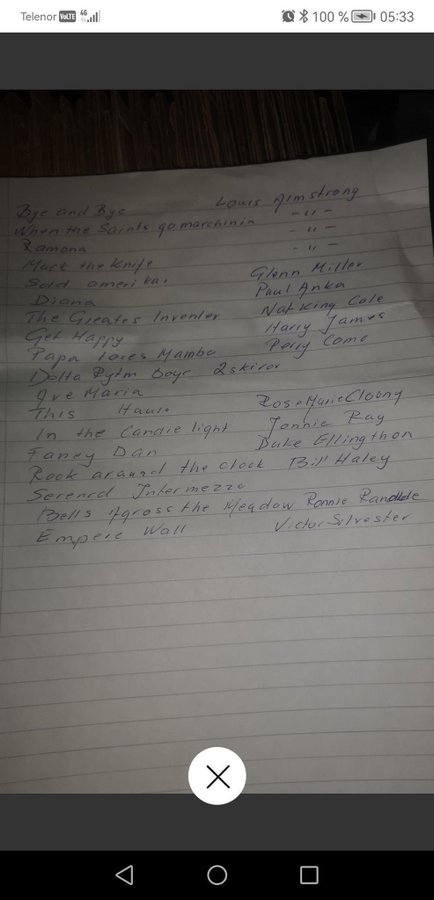 Telenor VoLTE 4G 100 % 05:33
Bye and Bye Louis Armstrong
When the Saints go marchinin - " -
Ramona - " -
Mack the Knife - " -
Sold amerikan Glenn Miller
Diana Paul Anka
The Greates Inventer Nat King Cole
Get Happy Harry James
Papa loves Mambo Perry Como
Delta Rytm Boys 2 skivor
Ave Maria
This House Rose Marie Cloony
In the Candle light Jonnie Ray
Fancy Dan Duke Ellingthon
Rock around the clock Bill Haley
Serenad Intermezzo
Bells Agross the Meadow Ronnie Ranalde
Empere Wall Victor Silvester